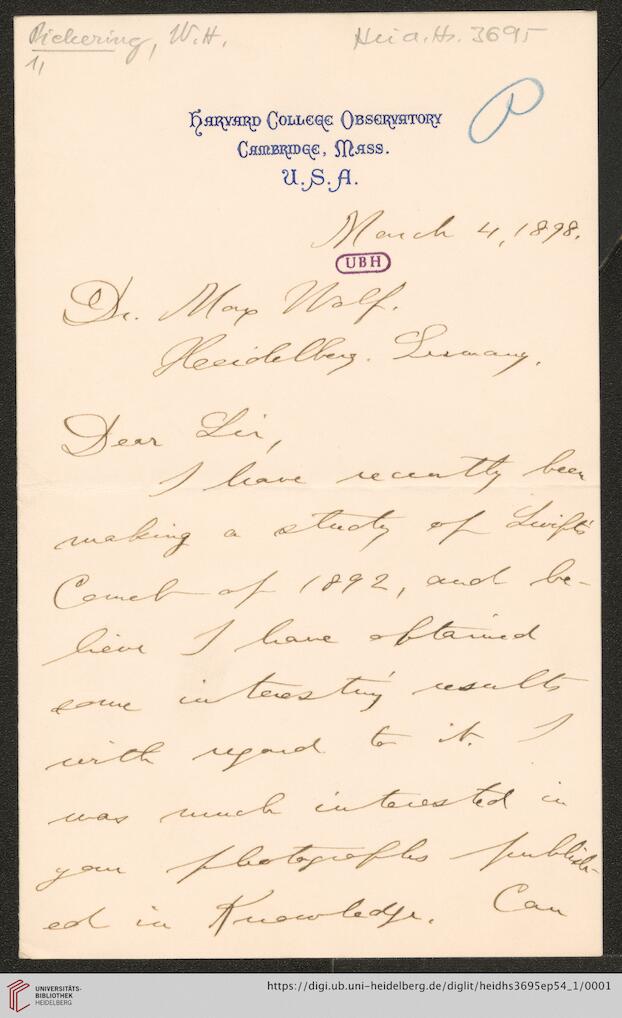 Pickering, W.H.
Heid. Hs. 3695
1,
P
HARVARD COLLEGE OBSERVATORY
CAMBRIDGE, MASS.
U.S.A.
March 4, 1898.
UBH
Dr. Max Wolf.
Heidelberg. Germany.
Dear Sir,
I have recently been
making a study of Swift's
Comet of 1892, and be-
lieve I have obtained
some interesting results
with regard to it. I
was much interested in
your photographs publish-
ed in Knowledge. Can
UNIVERSITÄTS-
BIBLIOTHEK
HEIDELBERG
https://digi.ub.uni-heidelberg.de/diglit/heidhs3695ep54_1/0001